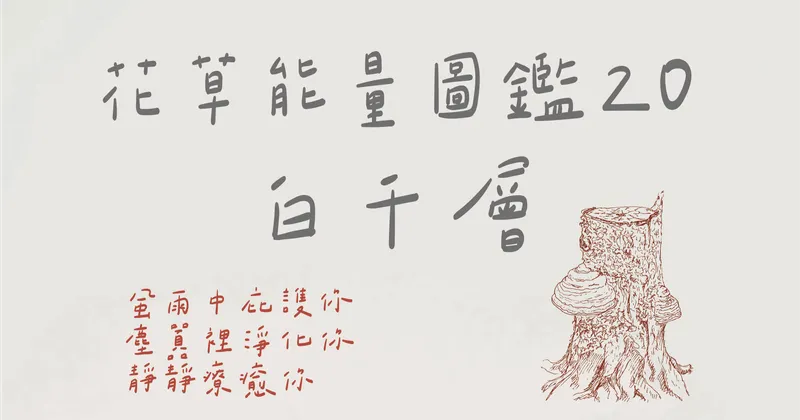 花草能量圖鑑20
白千層
風雨中庇護你
塵囂裡淨化你
靜靜療癒你